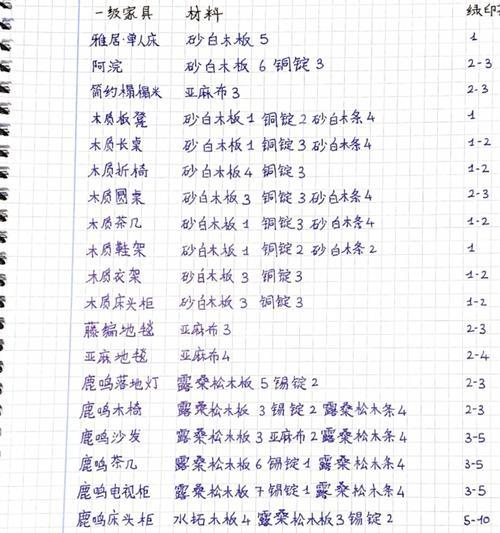 一级家具 材料 绿印花
雅居·单人床 砂白木板5 1
阿浣 砂白木板6 铜锭3 2-3
简约榻榻米 亚麻布3 2-3
木质板凳 砂白木板1 铜锭2 砂白木条4 1
木质长桌 砂白木板1 铜锭3 砂白木条4 1-2
木质折椅 砂白木板4 铜锭3 1-2
木质圆桌 砂白木板3 铜锭3 砂白木条4 2-3
木质茶几 砂白木板1 铜锭3 砂白木条4 1-2
木质鞋架 砂白木板1 铜锭2 砂白木条2 1
木质衣架 砂白木板3 铜锭3 1-2
木质床头柜 砂白木板3 铜锭3 1-2
藤编地毯 亚麻布3 2-3
亚麻地毯 亚麻布4 2-4
鹿鸣落地灯 露桑松木板5 锡锭2 2-3
鹿鸣木椅 露桑松木板3 锡锭2 露桑松木条4 2-3
鹿鸣沙发 露桑松木板3 亚麻布2 露桑松木条4 3-5
鹿鸣茶几 露桑松木板6 锡锭1 露桑松木条4 3-5
鹿鸣电视柜 露桑松木板7 锡锭1 露桑松木条4 3-5
鹿鸣床头柜 水拓木板4 露桑松木板3 锡锭2 5-10